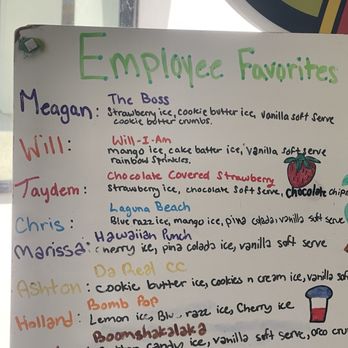 Employee Favorites
Meagan: The Boss
Strawberry ice, cookie butter ice, vanilla soft serve
cookie butter crumbs.
Will: Will-I-Am
mango ice, cake batter ice, vanilla soft serve
rainbow sprinkles.
Taydem: Chocolate Covered Strawberry
Strawberry ice, chocolate soft serve, chocolate chips
Chris: Laguna Beach
Blue razz ice, mango ice, pina colada, vanilla soft
Marissa: Hawaiian Punch
cherry ice, pina colada ice, vanilla soft serve
Ashton: Da Real CC
cookie butter ice, cookies n cream ice, vanilla sof
Holland: Bomb Pop
Lemon ice, Blu razz ice, Cherry ice
Boomshakalaka
candy ice, vanilla soft serve, oreo